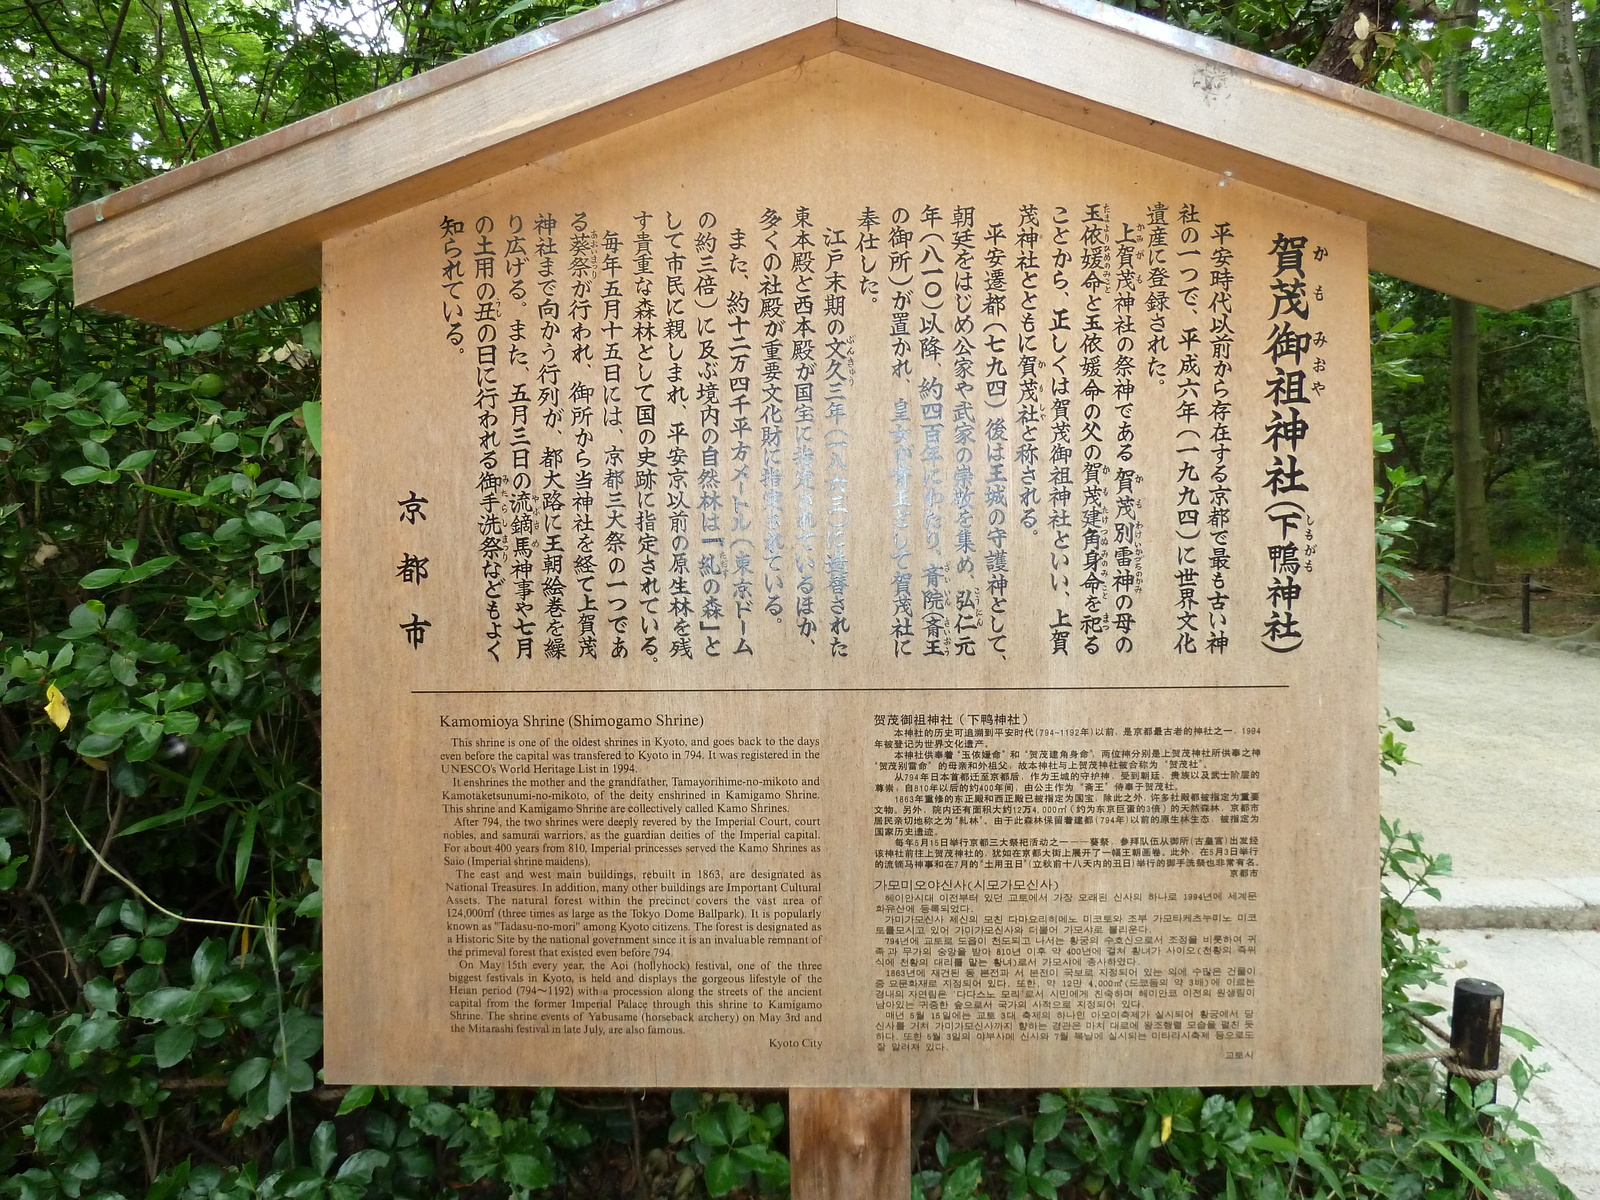 賀茂御祖神社(下鴨神社)
平安時代以前から存在する京都で最も古い神
社の一つで、平成六年(一九九四)に世界文化
遺産に登録された。
上賀茂神社の祭神である賀茂別雷神の母の
玉依媛命と玉依媛命の父の賀茂建角身命を祀る
ことから、正しくは賀茂御祖神社といい、上賀
茂神社とともに賀茂社と称される。
平安遷都(七九四)後は王城の守護神として、
朝廷をはじめ公家や武家の崇敬を集め、弘仁元
年(八一〇)以降、約四百年にわたり、斎院(斎王
の御所)が置かれ、皇女が斎王として賀茂社に
奉仕した。
江戸末期の文久三年(一八六三)に造替された
東本殿と西本殿が国宝に指定されているほか、
多くの社殿が重要文化財に指定されている。
また、約十二万四千平方メートル(東京ドーム
の約三倍)に及ぶ境内の自然林は「糺の森」と
して市民に親しまれ、平安京以前の原生林を残
す貴重な森林として国の史跡に指定されている。
毎年五月十五日には、京都三大祭の一つであ
る葵祭が行われ、御所から当神社を経て上賀茂
神社まで向かう行列が、都大路に王朝絵巻を繰
り広げる。また、五月三日の流鏑馬神事や七月
の土用の丑の日に行われる御手洗祭などもよく
知られている。
京都市
Kamomioya Shrine (Shimogamo Shrine)
This shrine is one of the oldest shrines in Kyoto, and goes back to the days
even before the capital was transfered to Kyoto in 794. It was registered in the
UNESCO's World Heritage List in 1994.
It enshrines the mother and the grandfather, Tamayorihime-no-mikoto and
Kamotaketsunumi-no-mikoto, of the deity enshrined in Kamigamo Shrine.
This shrine and Kamigamo Shrine are collectively called Kamo Shrines.
After 794, the two shrines were deeply revered by the Imperial Court, court
nobles, and samurai warriors, as the guardian deities of the Imperial capital.
For about 400 years from 810, Imperial princesses served the Kamo Shrines as
Saio (Imperial shrine maidens).
The east and west main buildings, rebuilt in 1863, are designated as
National Treasures. In addition, many other buildings are Important Cultural
Assets. The natural forest within the precinct covers the vast area of
124,000㎡ (three times as large as the Tokyo Dome Ballpark). It is popularly
known as "Tadasu-no-mori" among Kyoto citizens. The forest is designated as
a Historic Site by the national government since it is an invaluable remnant of
the primeval forest that existed even before 794.
On May 15th every year, the Aoi (hollyhock) festival, one of the three
biggest festivals in Kyoto, is held and displays the gorgeous lifestyle of the
Heian period (794～1192) with a procession along the streets of the ancient
capital from the former Imperial Palace through this shrine to Kamigamo
Shrine. The shrine events of Yabusame (horseback archery) on May 3rd and
the Mitarashi festival in late July, are also famous.
Kyoto City
贺茂御祖神社（下鸭神社）
本神社的历史可追溯到平安时代(794-1192年)以前，是京都最古老的神社之一，1994
年被登记为世界文化遗产。
本神社供奉着“玉依媛命”和“贺茂建角身命”，两位神分别是上贺茂神社所供奉之神
“贺茂别雷命”的母亲和外祖父。故本神社与上贺茂神社被合称为“贺茂社”。
从794年日本首都迁至京都后，作为王城的守护神，受到朝廷、贵族以及武士阶层的
尊崇，自810年以后的约400年间，由公主作为“斋王”侍奉于贺茂社。
1863年重修的东正殿和西正殿已被指定为国宝，除此之外，许多社殿都被指定为重要
文物。另外，院内还有面积大约12万4,000㎡（约为东京巨蛋的3倍）的天然森林，京都市
居民亲切地称之为“糺林”。由于此森林保留着建都(794年)以前的原生林生态，被指定为
国家历史遗迹。
每年5月15日举行京都三大祭祀活动之一——葵祭，参拜队伍从御所(古皇宫)出发经
该神社前往上贺茂神社的，犹如在京都大街上展开了一幅王朝画卷。此外，在5月3日举行
的流镝马神事和在7月的“土用丑日”(立秋前十八天内的丑日)举行的御手洗祭也非常有名。
京都市
가모미오야신사(시모가모신사)
헤이안시대 이전부터 있던 교토에서 가장 오래된 신사의 하나로 1994년에 세계문
화유산에 등록되었다.
가미가모신사 제신의 모친 다마요리히메노 미코토와 조부 가모타케츠누미노 미코
토를모시고 있어 가미가모신사와 더불어 가모샤로 불리운다.
794년에 교토로 도읍이 천도되고 나서는 황궁의 수호신으로서 조정을 비롯하여 귀
족과 무가의 숭앙을 받아 810년 이후 약 400년에 걸쳐 황녀가 사이오(천황의 즉위
식에 천황의 대리를 맡는 황녀)로서 가모사에 종사하였다.
1863년에 재건된 동 본전과 서 본전이 국보로 지정되어 있는 외에 수많은 건물이
중요문화재로 지정되어 있다. 또한, 약 12만 4,000㎡(도쿄돔의 약 3배)에 이르는
경내의 자연림은 '다다스노 모리'로서 시민에게 친숙하며 헤이안쿄 이전의 원생림이
남아있는 귀중한 숲으로서 국가의 사적으로 지정되어 있다.
매년 5월 15일에는 교토 3대 축제의 하나인 아오이축제가 실시되어 황궁에서 당
신사를 거쳐 가미가모신사까지 향하는 경관은 마치 대로에 왕조행렬 모습을 펼친 듯
하다. 또한 5월 3일의 야부사메 신사와 7월 복날에 실시되는 미타라시축제 등으로도
잘 알려져 있다.
교토시